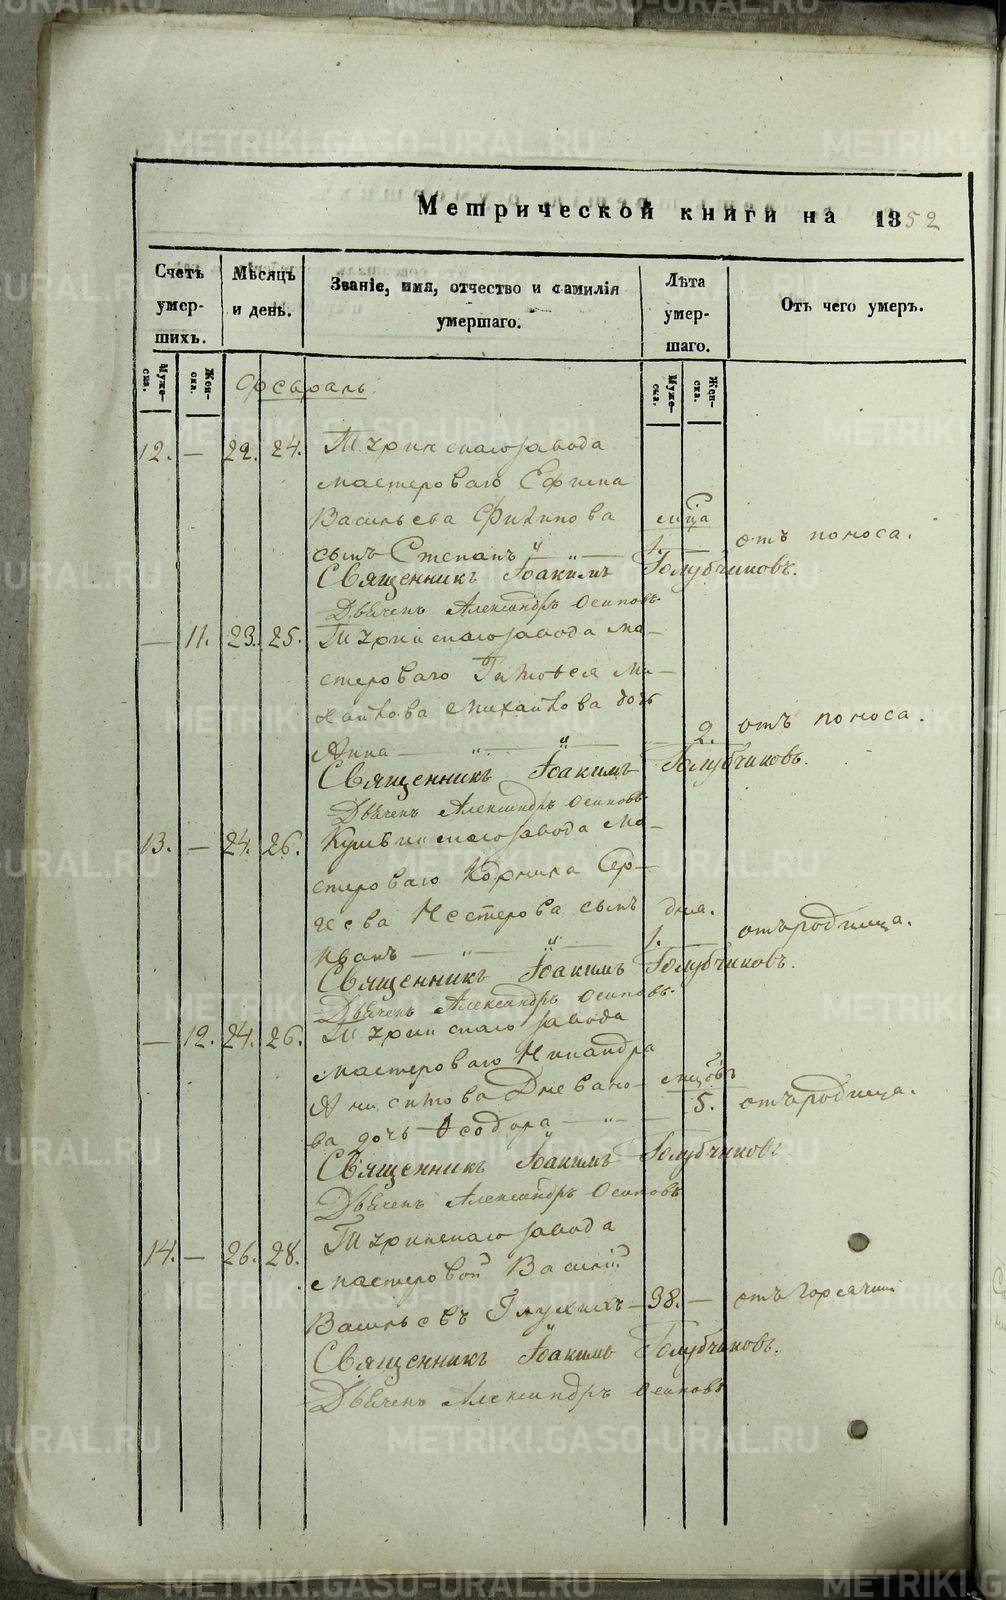 Метрической книги на 1852
Счетъ умер- шихъ.
Мѣсяцъ и день.
Званіе, имя, отчество и фамилія умершаго.
Лѣта умер- шаго.
Отъ чего умеръ.
Муже- ска.
Жен- ска.
Муже- ска.
Жен- ска.
Февраль.
12. — 22. 24. Туринскаго завода
мастероваго Ефима
Васильева Филипова м̃ца
сынъ Степанъ — " — 1. — отъ поноса.
Священникъ Іоакимъ Голубчиковъ.
Дьячекъ Александръ Осиповъ
— 11. 23. 25. Туринскаго завода ма-
стероваго
Михайлова дочь
Анна — " — " — 2. отъ поноса.
Священникъ Іоакимъ Голубчиковъ.
Дьячекъ Александръ Осиповъ
13. — 24. 26. Кушвинскаго завода ма-
стероваго Корнила Сер-
гѣева Нестерова сынъ дня.
Иванъ — " — " — 1. — отъ родимца.
Священникъ Іоакимъ Голубчиковъ.
Дьячекъ Александръ Осиповъ.
— 12. 24. 26. Туринскаго завода
мастероваго Никандра
Аникитова Дневано- мцовъ
ва дочь Ѳеодора — " — 5. отъ родимца.
Священникъ Іоакимъ Голубчиковъ
Дьячекъ Александръ Осиповъ
14. — 26. 28. Туринскаго завода
мастеровой Василій
Васильевъ Глухихъ — 38. — отъ горячки
Священникъ Іоакимъ Голубчиковъ.
Дьячекъ Александръ Осиповъ
METRIKI.GASO-URAL.RU